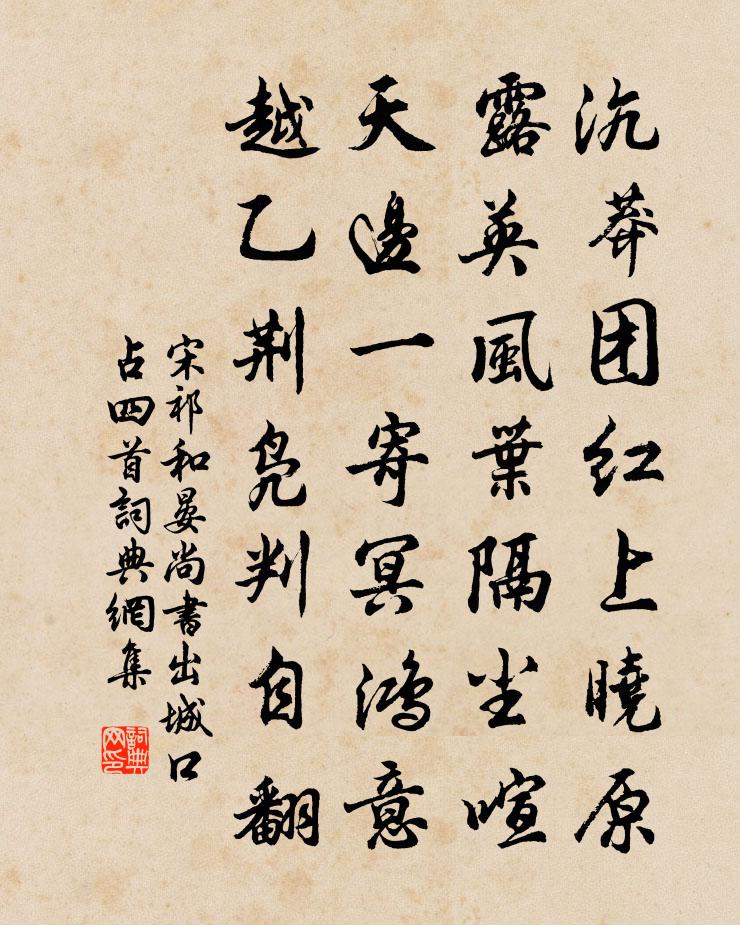 沆莽团红上曉原
露英風葉隔尘喧
天邊一寄冥鴻意
越乙荆凫判自翻
宋祁和晏尚書出城口
占四首詞典網集
詞典网印